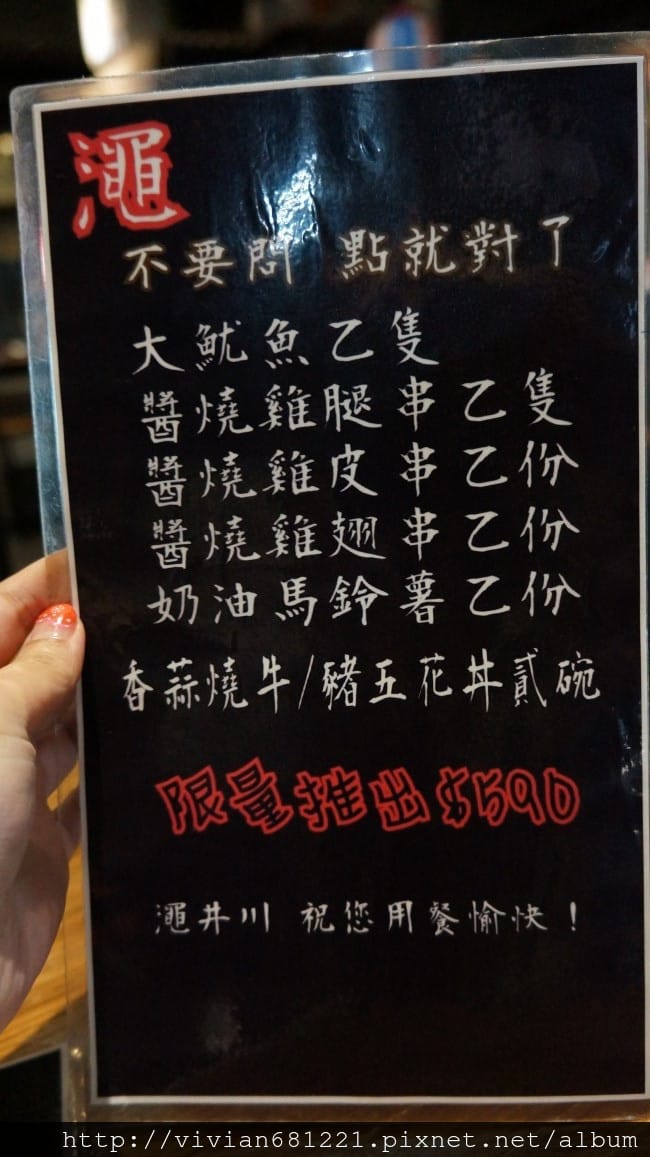 澠
不要問 點就對了
大魷魚乙隻
醬燒雞腿串乙隻
醬燒雞皮串乙份
醬燒雞翅串乙份
奶油馬鈴薯乙份
香蒜燒牛/豬五花丼貳碗
限量推出$590
澠井川 祝您用餐愉快！
http://vivian681221.pixnet.net/album